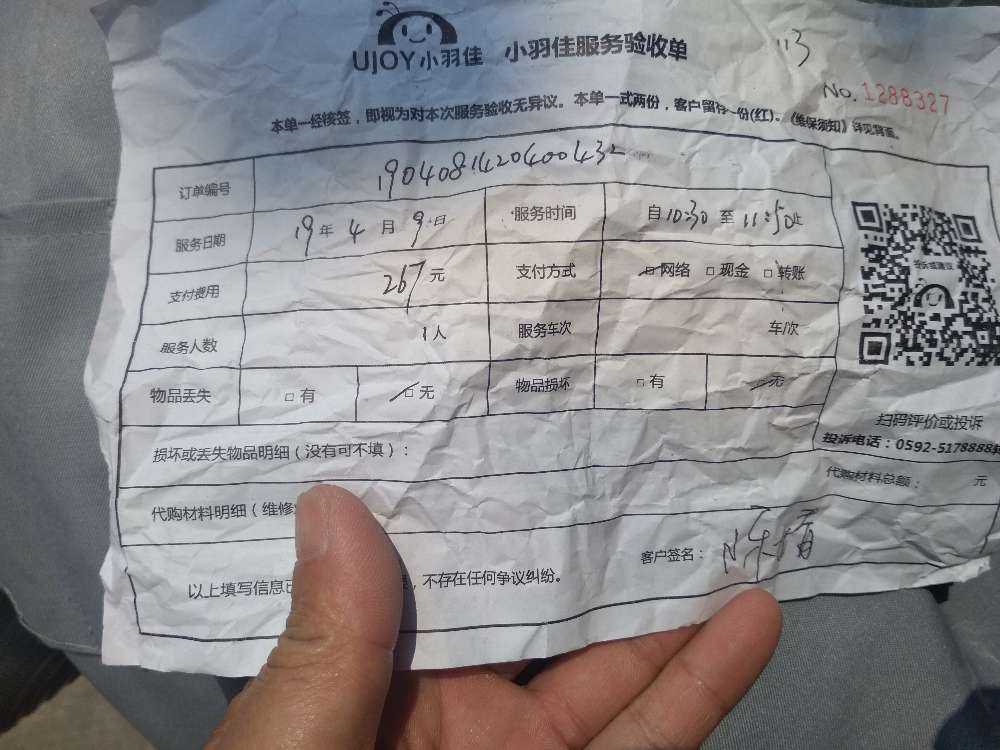 UJOY小羽佳 小羽佳服务验收单
113
No.1288327
本单一经核签，即视为对本次服务验收无异议。本单一式两份，客户留存一份(红)。《维保须知》详见背面。
订单编号 190408142040043
服务日期 19年4月9日 服务时间 自10:30至11:50止
支付费用 267元 支付方式 □网络 □现金 □转账
服务人数 1人 服务车次 车/次
物品丢失 □有 □无 物品损坏 □有 □无
扫码评价或投诉
投诉电话：0592-5178888转
损坏或丢失物品明细（没有可不填）：
代购材料明细（维修 代购材料总额： 元
以上填写信息已 ，不存在任何争议纠纷。 客户签名：陈